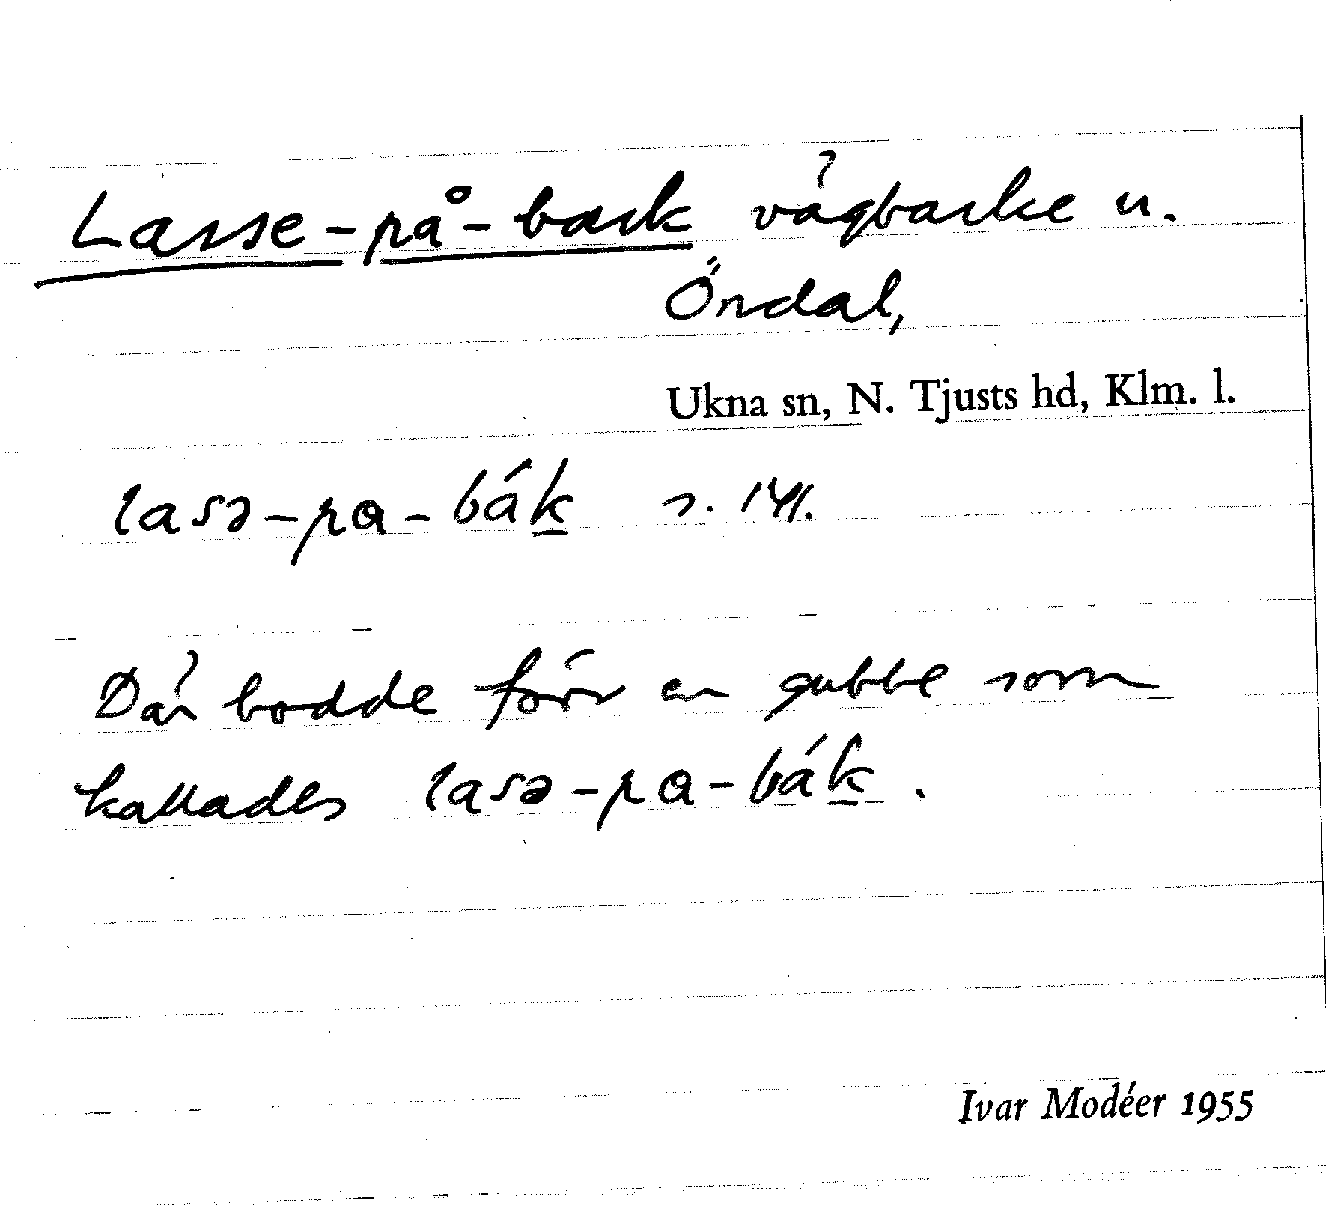 Lasse-på-back vägbacke u.
Öndal,
Ukna sn, N. Tjusts hd, Klm. l.
lasə-pa-bák s. 141.
Där bodde förr en gubbe som
kallades lasə-pa-bák.
Ivar Modéer 1955